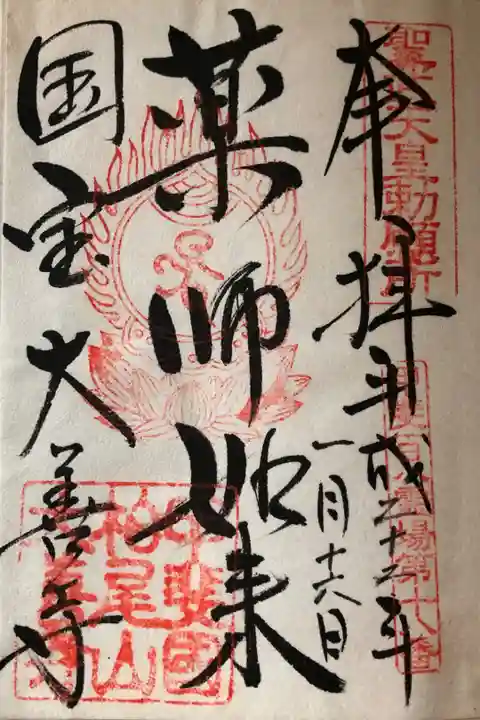 聖武天皇勅願所
甲斐百八霊場第十番
奉拝 平成二十二年
一月十六日
薬師如来
国宝大善寺
甲斐國
柏尾山
大善寺